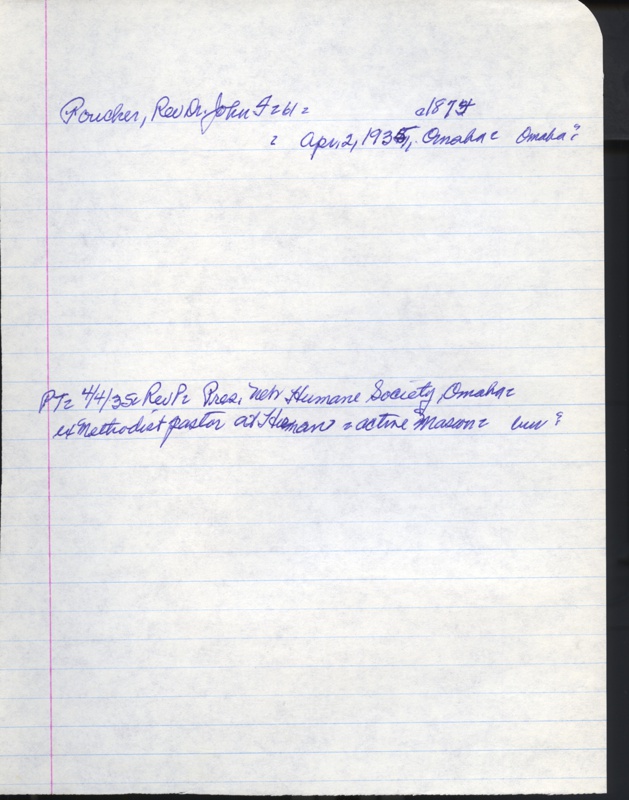 Poucher, Rev Dr. John F= 61= a1874
= Apr. 2, 1935, Omaha= Omaha?
PT= 4/4/35= Rev P= Pres. Neb Humane Society Omaha=
ex Methodist pastor at =active Mason= bur?